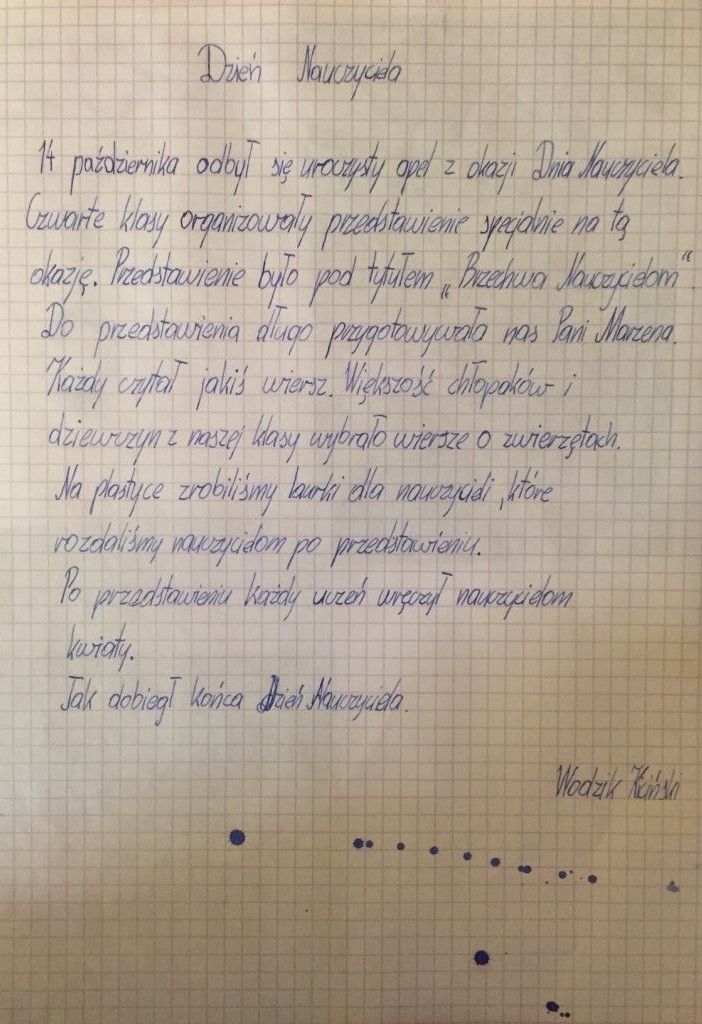 Dzień Nauczyciela
14 października odbył się uroczysty apel z okazji Dnia Nauczyciela.
Czwarte klasy organizowały przedstawienie specjalnie na tą
okazję. Przedstawienie było pod tytułem „Brzechwa Nauczycielom”.
Do przedstawienia długo przygotowywała nas Pani Marzena.
Każdy czytał jakiś wiersz. Większość chłopaków i
dziewczyn z naszej klasy wybrało wiersze o zwierzętach.
Na plastyce zrobiliśmy laurki dla nauczycieli, które
rozdaliśmy nauczycielom po przedstawieniu.
Po przedstawieniu każdy uczeń wręczył nauczycielom
kwiaty.
Tak dobiegł końca Dzień Nauczyciela.
Wodzik